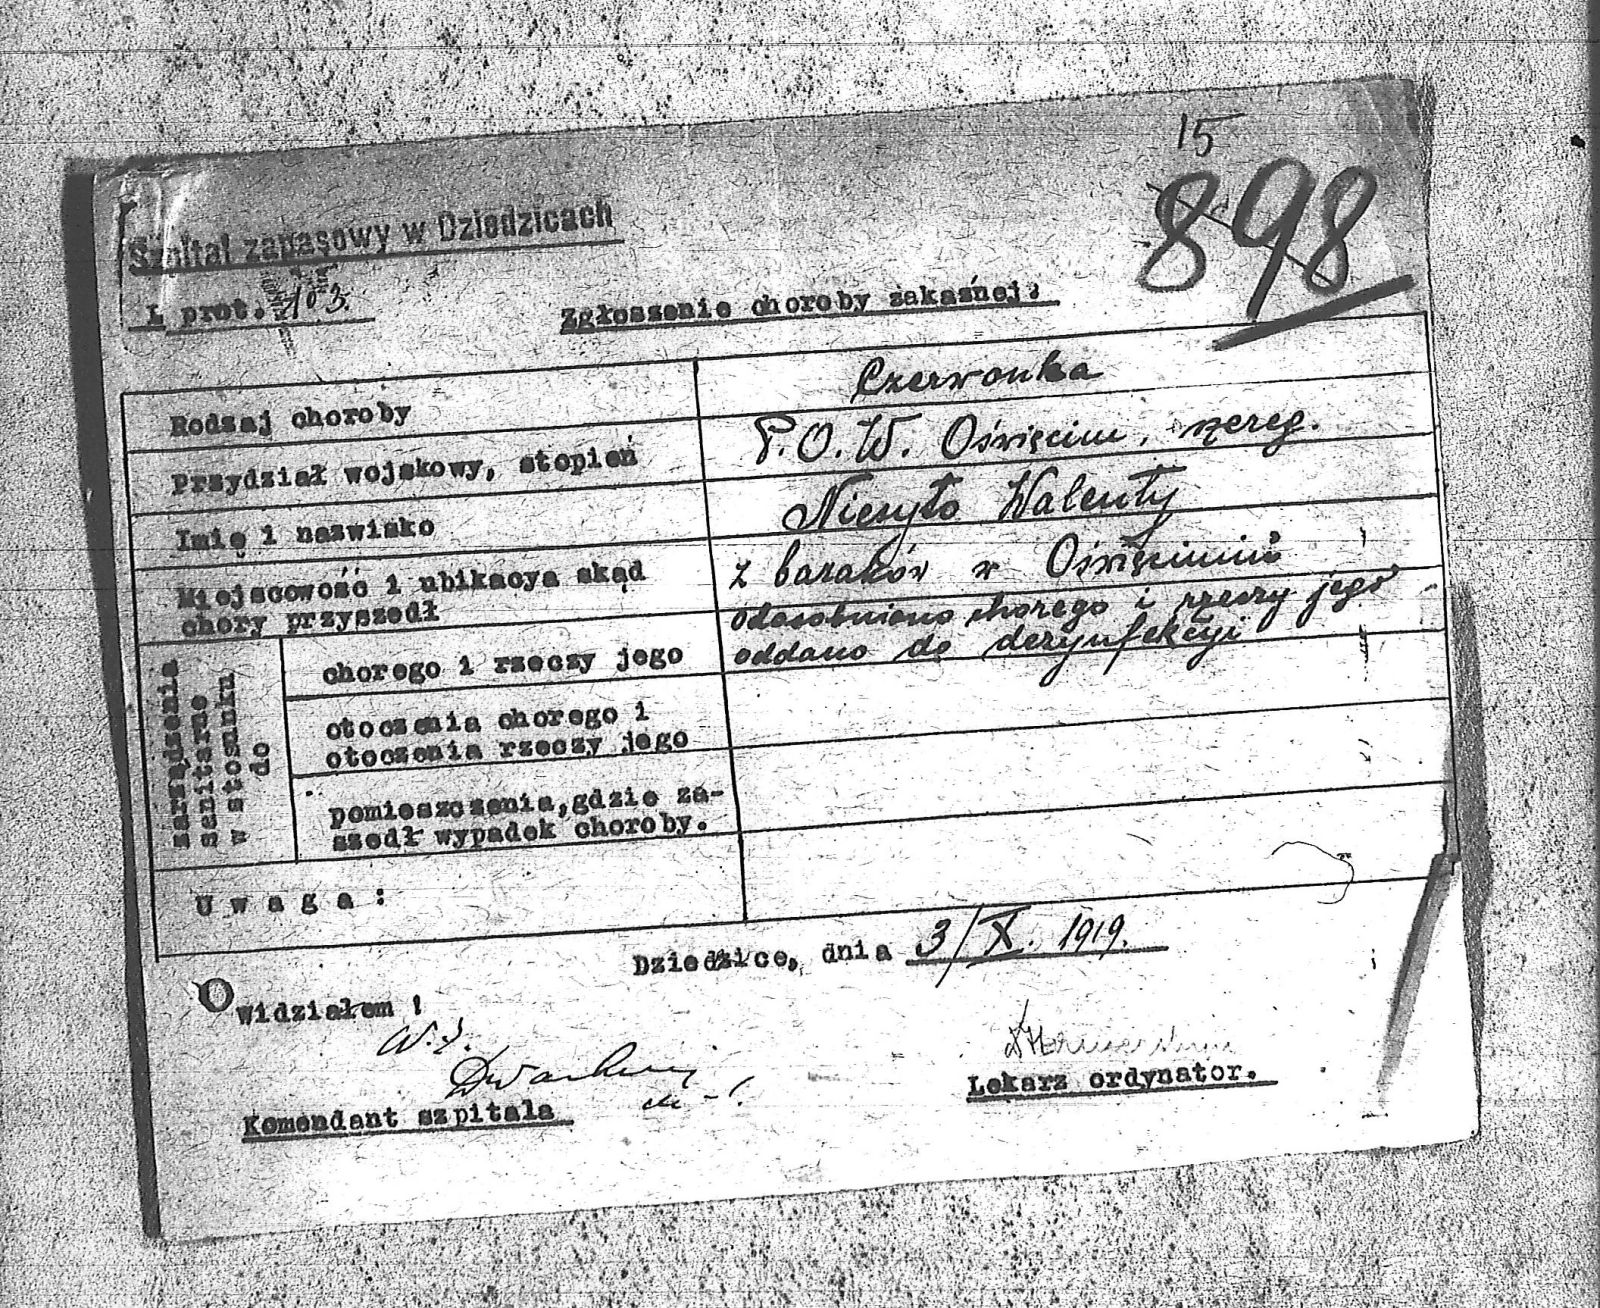 15
898
Szpital zapasowy w Dziedzicach
L prot. 103.
Zgłoszenie choroby zakaźnej.
Rodzaj choroby
Czerwonka
Przydział wojskowy, stopień
P.O.W. Oświęcim, szereg.
Imię i nazwisko
Niesyto Walenty
Miejscowość i ubikacya skąd
chory przyszedł
z baraków w Oświęcimiu
zarządzenia
sanitarne
w stosunku
do
chorego i rzeczy jego
odosobniono chorego i rzeczy jego
oddano do dezynfekcyi
otoczenia chorego i
otoczenia rzeczy jego
pomieszczenia, gdzie za-
szedł wypadek choroby.
Uwaga:
Dziedzice, dnia 3/X. 1919.
Widziałem !
Komendant szpitala
Lekarz ordynator.